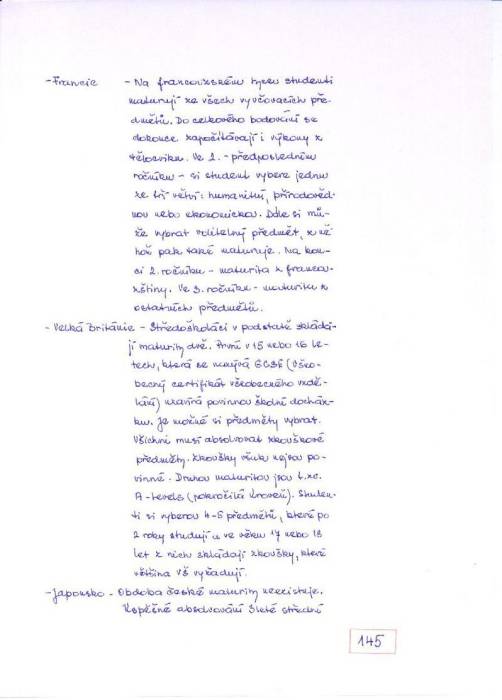 -Francie - Na francouzském lyceu studenti
maturují ze všech vyučovacích pře-
dmětů. Do celkového bodování se
dokonce započítávají i výkony z
tělocviku. Ve 2. - předposledním
ročníku - si student vybere jednu
ze tří větví: humanitní, přírodověd-
nou nebo ekonomickou. Dále si mů-
že vybrat volitelný předmět, z ně-
hož pak také maturuje. Na kon-
ci 2. ročníku - maturita z francou-
zštiny. Ve 3. ročníku - maturita z
ostatních předmětů.
-Velká Británie - Středoškoláci v podstatě skláda-
jí maturity dvě. První v 15 nebo 16 le-
tech, která se nazývá GCSE (Všeo-
becný certifikát všeobecného vzdě-
lání) uzavírá povinnou školní docház-
ku. Je možné si předměty vybrat.
Všichni musí absolvovat zkouškové
předměty. Zkoušky však nejsou po-
vinné. Druhou maturitou jsou t.zv.
A-levels (pokročilá úroveň). Studen-
ti si vyberou 4-5 předmětů, které po
2 roky studují a ve věku 17 nebo 18
let z nich skládají zkoušky, které
většina VŠ vyžadují.
-Japonsko - Obdoba české maturity neexistuje.
Úspěšné absolvování 3leté střední
145